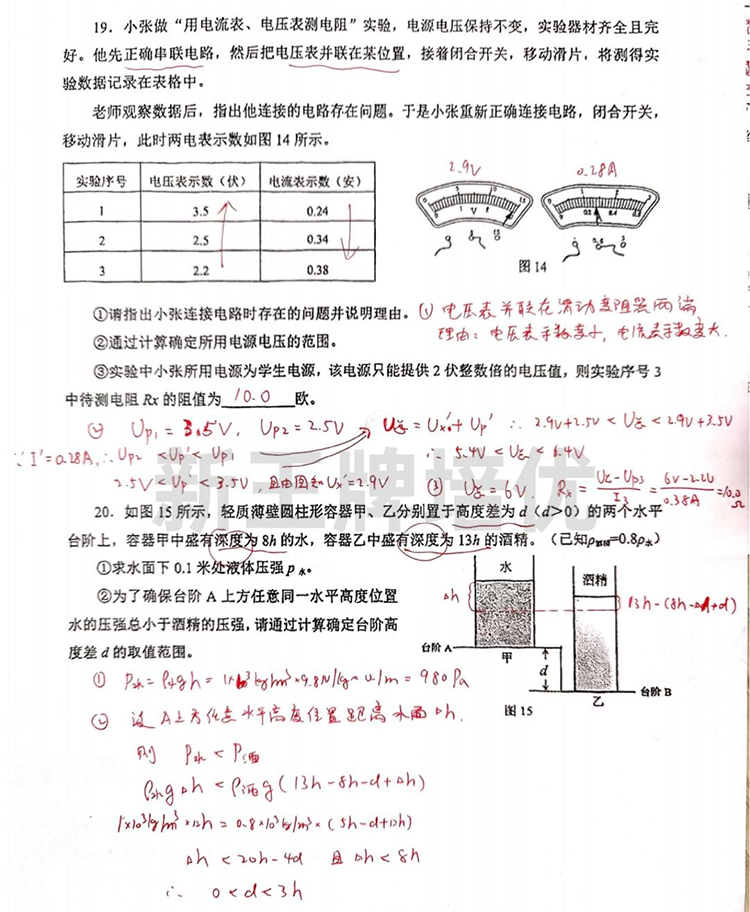 19．小张做“用电流表、电压表测电阻”实验，电源电压保持不变，实验器材齐全且完
好。他先正确串联电路，然后把电压表并联在某位置，接着闭合开关，移动滑片，将测得实
验数据记录在表格中。
老师观察数据后，指出他连接的电路存在问题。于是小张重新正确连接电路，闭合开关，
移动滑片，此时两电表示数如图14所示。
实验序号 电压表示数（伏） 电流表示数（安）
1 3.5 0.24
2 2.5 0.34
3 2.2 0.38
2.9V 0.28A
图14
①请指出小张连接电路时存在的问题并说明理由。
① 电压表并联在滑动变阻器两端
②通过计算确定所用电源电压的范围。
理由：电压表示数变小，电流表示数变大.
③实验中小张所用电源为学生电源，该电源只能提供2伏整数倍的电压值，则实验序号3
中待测电阻Rx的阻值为 10.0 欧。
② Up1 = 3.5V, Up2 = 2.5V U总 = Ux' + Up' ∴ 2.9V+2.5V < U总 < 2.9V+3.5V
∵ I'=0.28A, ∴ Up2 < Up' < Up1 ∴ 5.4V < U总 < 6.4V
2.5V < Up' < 3.5V, 且由图知Ux'=2.9V ③ U总 = 6V. Rx = (U总-Up3)/I3 = (6V-2.2V)/0.38A = 10.0Ω
新王牌培优
20．如图15所示，轻质薄壁圆柱形容器甲、乙分别置于高度差为d（d>0）的两个水平
台阶上，容器甲中盛有深度为8h的水，容器乙中盛有深度为13h的酒精。（已知ρ酒精=0.8ρ水）
①求水面下0.1米处液体压强p水。
②为了确保台阶A上方任意同一水平高度位置
水的压强总小于酒精的压强，请通过计算确定台阶高
度差d的取值范围。
水 酒精
Δh 13h-(8h-Δh+d)
台阶A 甲 d
乙 台阶B
图15
① P水 = ρ水gh = 1×10³kg/m³×9.8N/kg×0.1m = 980Pa
② 设A上方任意水平高度位置距离水面Δh.
则 P水 < P酒
ρ水gΔh < ρ酒g(13h-8h-d+Δh)
1×10³kg/m³×Δh = 0.8×10³kg/m³×(5h-d+Δh)
Δh < 20h-4d 且Δh < 8h
∴ 0 < d < 3h